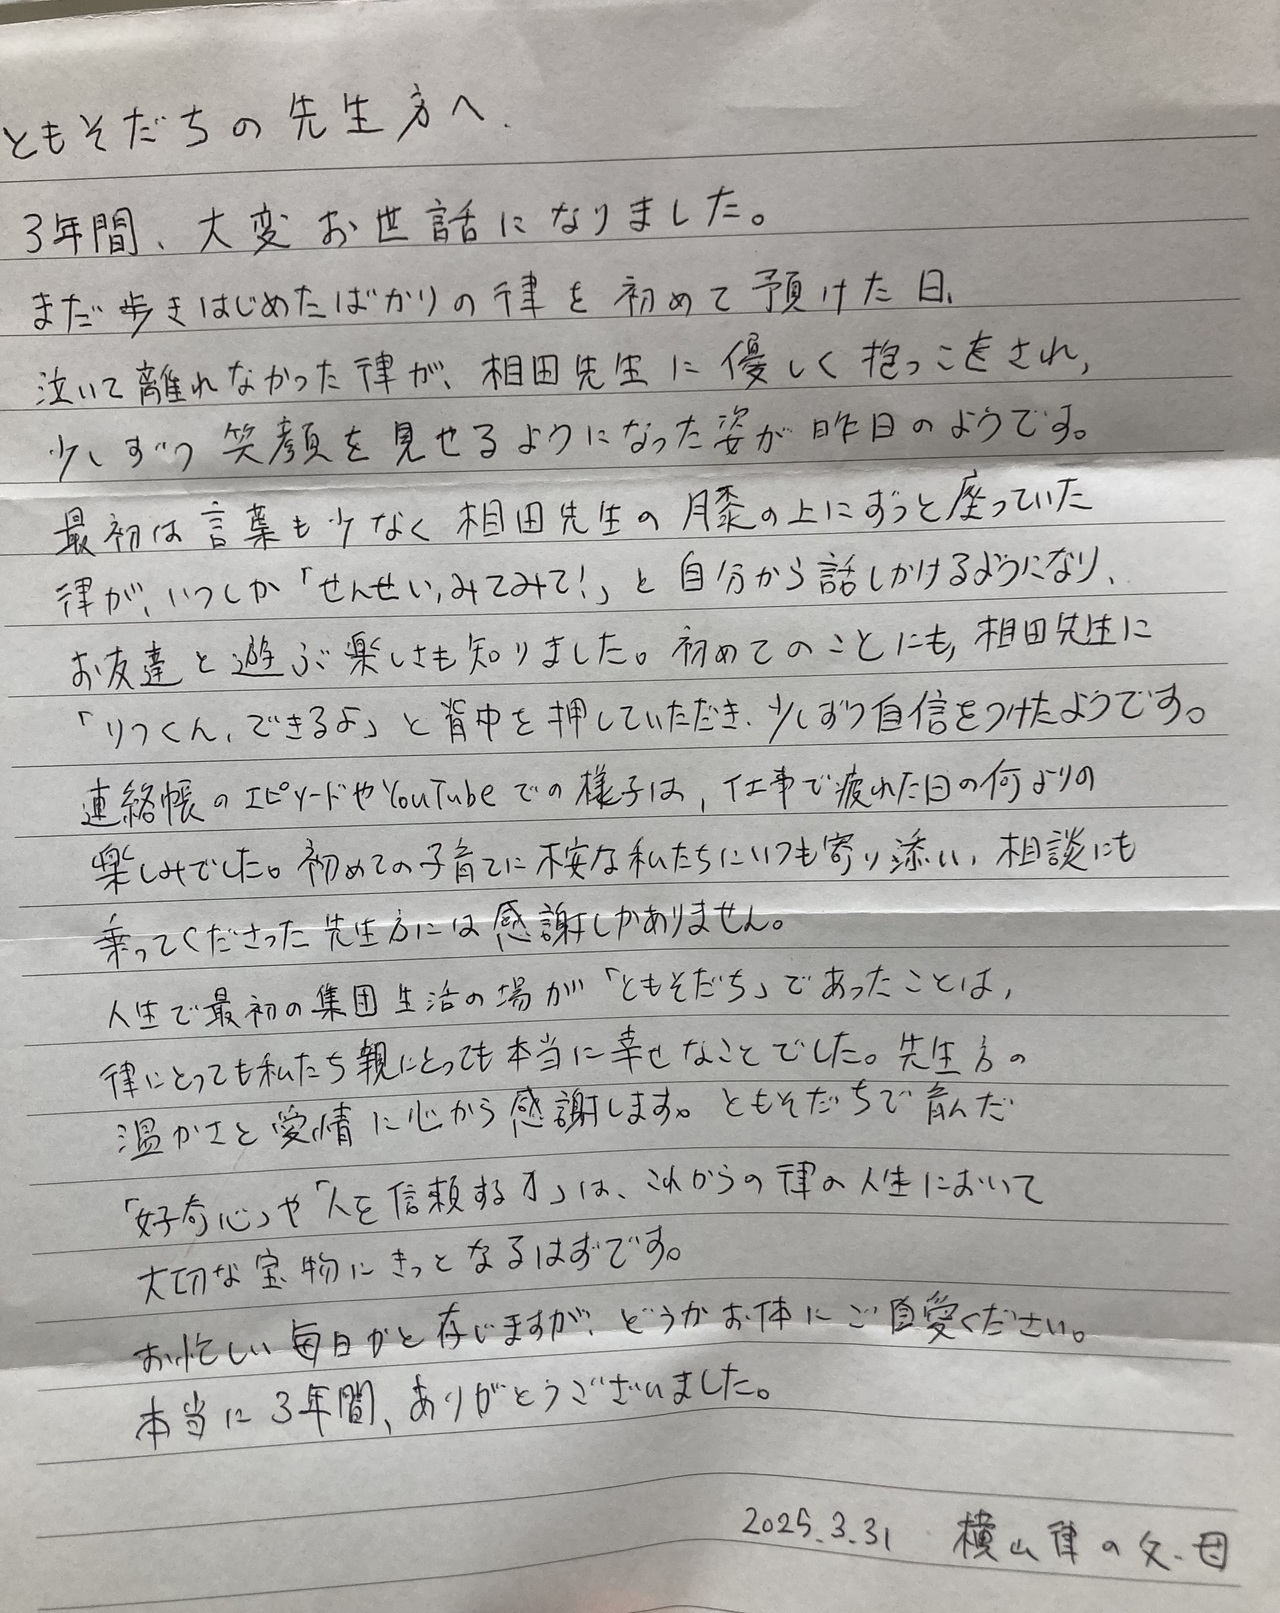 ともそだちの先生方へ.
3年間、大変お世話になりました。
まだ歩きはじめたばかりの律を初めて預けた日、
泣いて離れなかった律が、相田先生に優しく抱っこをされ、
少しずつ笑顔を見せるようになった姿が昨日のようです。
最初は言葉も少なく相田先生の膝の上にずっと座っていた
律が、いつしか「せんせい、みてみて!」と自分から話しかけるようになり、
お友達と遊ぶ楽しさも知りました。初めてのことにも、相田先生に
「りつくん、できるよ」と背中を押していただき、少しずつ自信をつけたようです。
連絡帳のエピソードやYouTubeでの様子は、仕事で疲れた日の何よりの
楽しみでした。初めての子育てに不安な私たちにいつも寄り添い、相談にも
乗ってくださった先生方には感謝しかありません。
人生で最初の集団生活の場が「ともそだち」であったことは、
律にとっても私たち親にとっても本当に幸せなことでした。先生方の
温かさと愛情に心から感謝します。ともそだちで育んだ
「好奇心」や「人を信頼する力」は、これからの律の人生において
大切な宝物にきっとなるはずです。
お忙しい毎日かと存じますが、どうかお体にご自愛ください。
本当に3年間、ありがとうございました。
2025.3.31 横山律の父・母